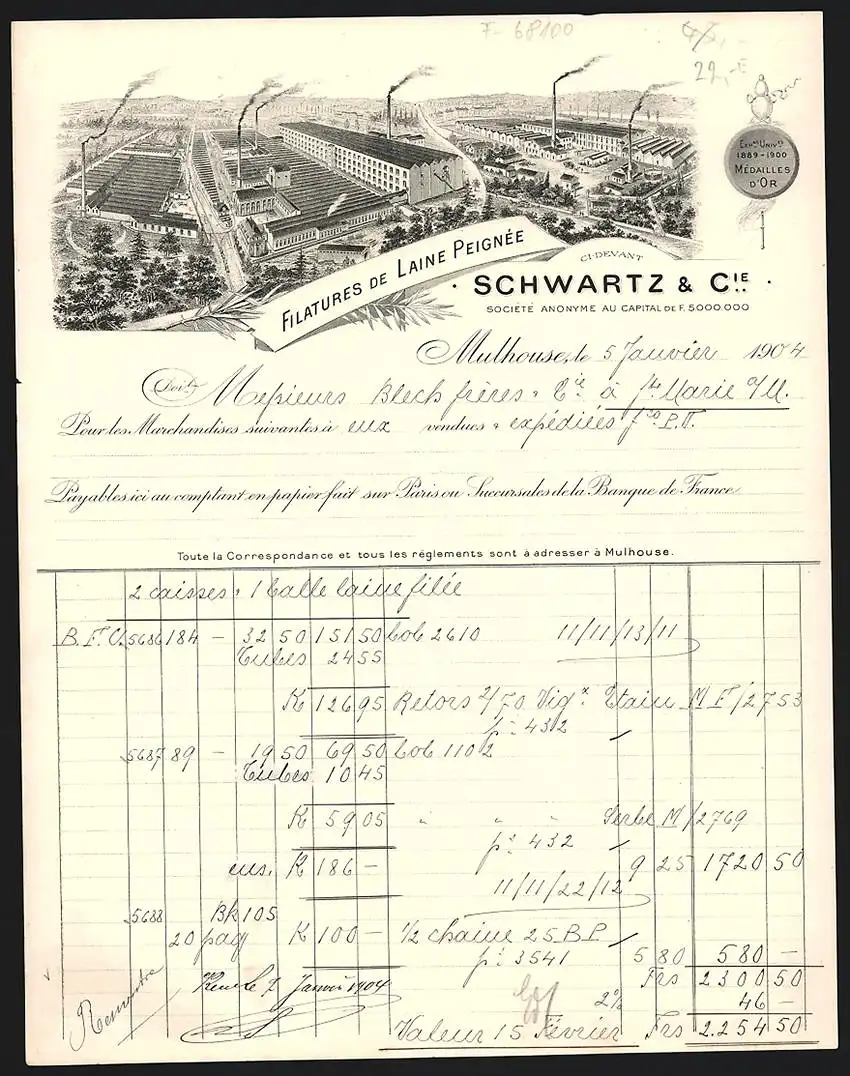 F- 68100
22,-E
EXPos UNIVes
1889-1900
MÉDAILLES
D'OR
FILATURES DE LAINE PEIGNÉE
CI-DEVANT
SCHWARTZ & CIE
SOCIÉTÉ ANONYME AU CAPITAL DE F. 5.000.000
Mulhouse, le 5 Janvier 1904
Doit Messieurs Blech frères & Cie à Ste Marie a/M.
Pour les Marchandises suivantes à eux vendues & expédiées fco P.V.
Payables ici au comptant en papier fait sur Paris ou Succursales de la Banque de France
Toute la Correspondance et tous les réglements sont à adresser à Mulhouse.
2 caisses & 1 balle laine filée
B.F.C. 5686 184 - 32 50 151 50 bob 2610 11/11/13/11
Tubes 24 55
K 126 95 Retors 2/70 Vigx Etain M F/2753
pr 432
5687 89 - 19 50 69 50 bob 1102
Tubes 10 45
K 59 05 " " " Serbe M/2769
pr 432
ens. K 186 - 9 25 1720 50
11/11/22/12
5688 Bk 105
20 paq K 100 - 1/2 chaine 25 B P
pr 3541 5 80 580 -
Remettre 7 Janvier 1904 Frs 2300 50
2% 46 -
Valeur 15 Février Frs 2.254 50